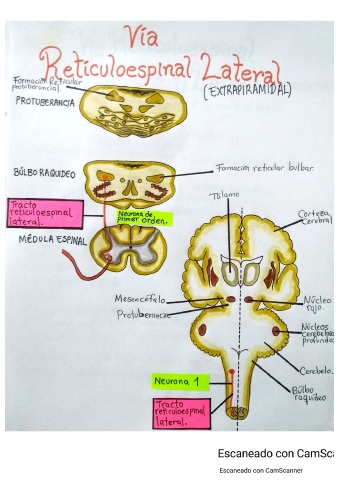 Vía
Reticuloespinal Lateral
(EXTRAPIRAMIDAL)
Formación Reticular
protuberancial.
PROTUBERANCIA
BÚLBO RAQUIDEO
Formación reticular bulbar.
Tracto
reticuloespinal
lateral.
Neurona de
primer orden.
MÉDULA ESPINAL
Tálamo
Corteza
Cerebral
Mesencéfalo
Protuberancia
Núcleo
rojo.
Núcleos
cerebelosos
profundos
Cerebelo.
Búlbo
raquídeo
Neurona 1
Tracto
reticuloespinal
lateral.
Escaneado con CamSca
Escaneado con CamScanner